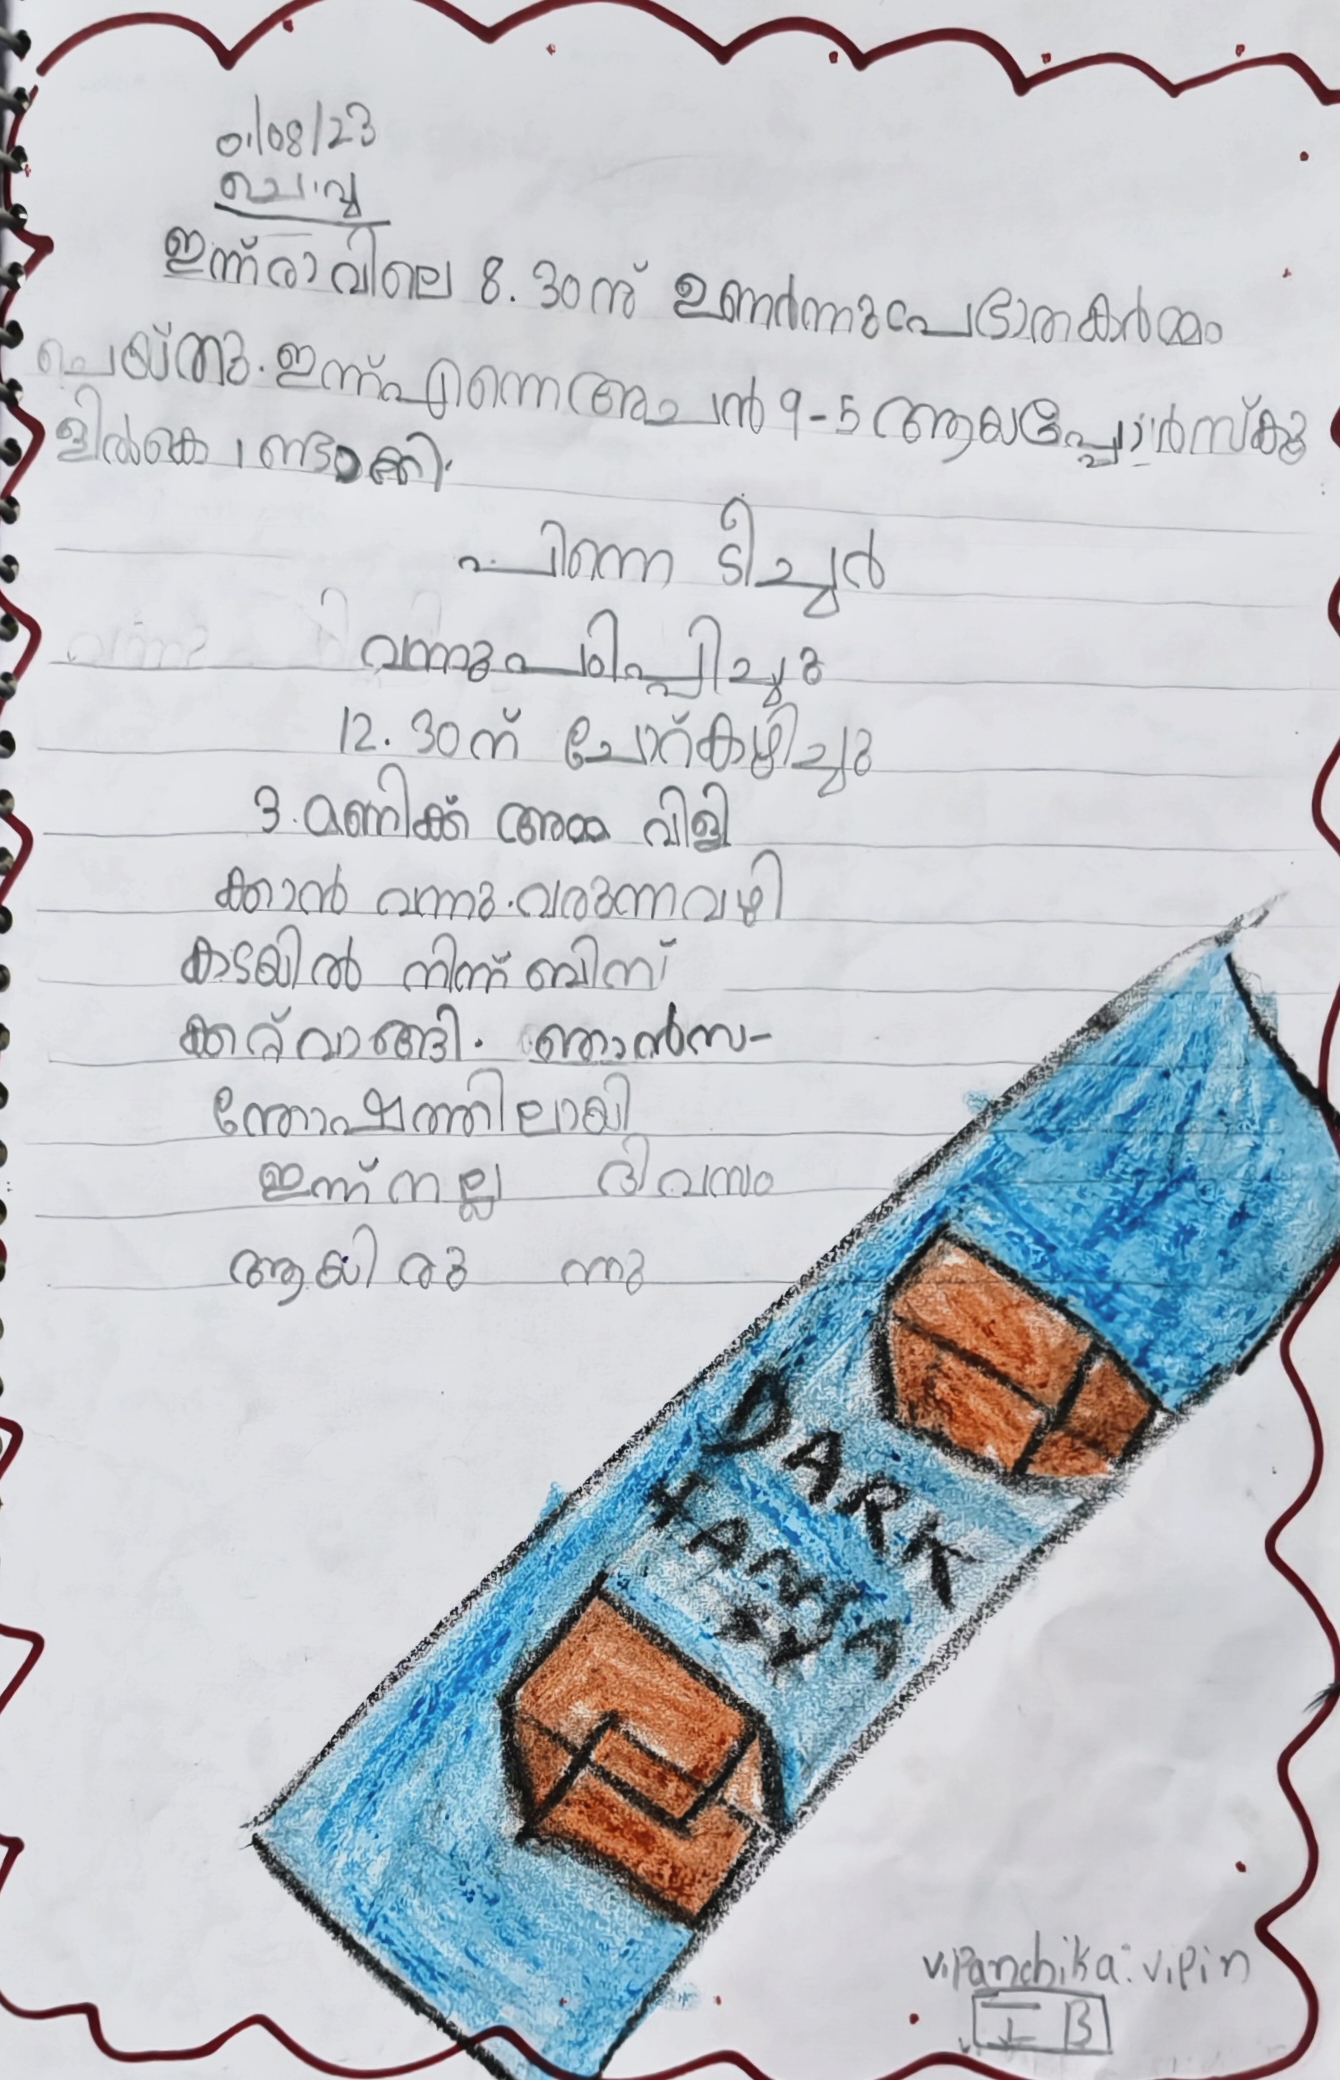 01/08/23
ചൊവ്വ
ഇന്ന് രാവിലെ 8.30 ന് ഉണർന്നു പ്രഭാതകർമ്മം
ചെയ്തു. ഇന്ന് എന്നെ അച്ചൻ 9-5 ആയപ്പോൾ സ്കൂ
ളിൽ കൊണ്ടാക്കി.
പിന്നെ ടീച്ചർ
വന്നു പഠിപ്പിച്ചു
12.30 ന് ചോറ് കഴിച്ചു
3. മണിക്ക് അമ്മ വിളി
ക്കാൻ വന്നു. വരുന്ന വഴി
കടയിൽ നിന്ന് ബിസ്
ക്കറ്റ് വാങ്ങി. ഞാൻ സ-
ന്തോഷത്തിലായി
ഇന്ന് നല്ല ദിവസം
ആയിരു ന്നു
DARK
FANTA
SY
V.Panchika.Vipin
I B